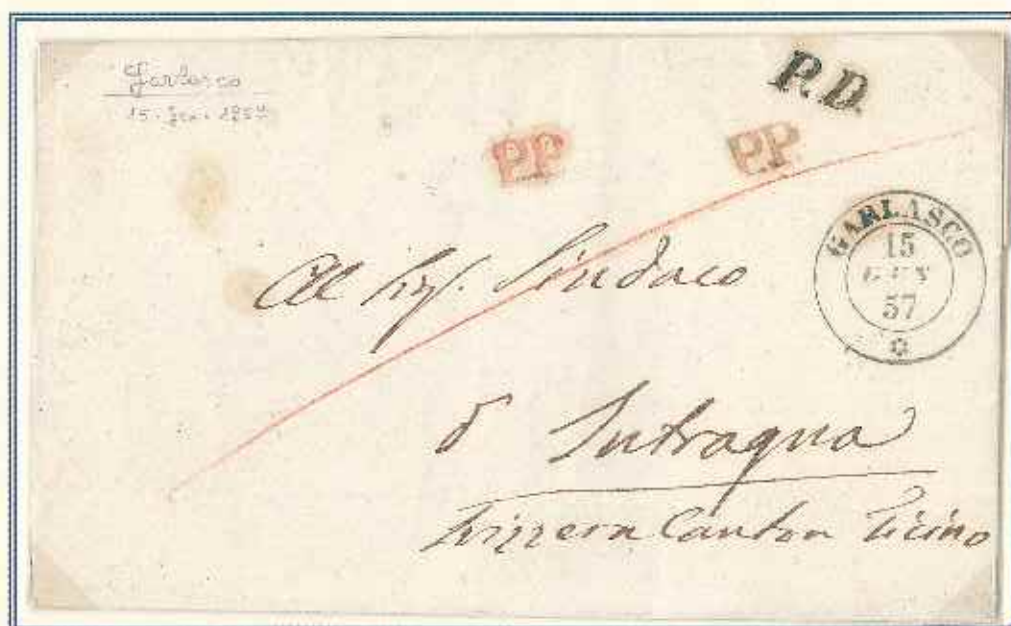 Garlasco
15. Gen. 1857
P.D.
P.P.
P.P.
GARLASCO
15
GEN
57
Al Sig. Sindaco
d' Intragna
Svizzera Canton Ticino